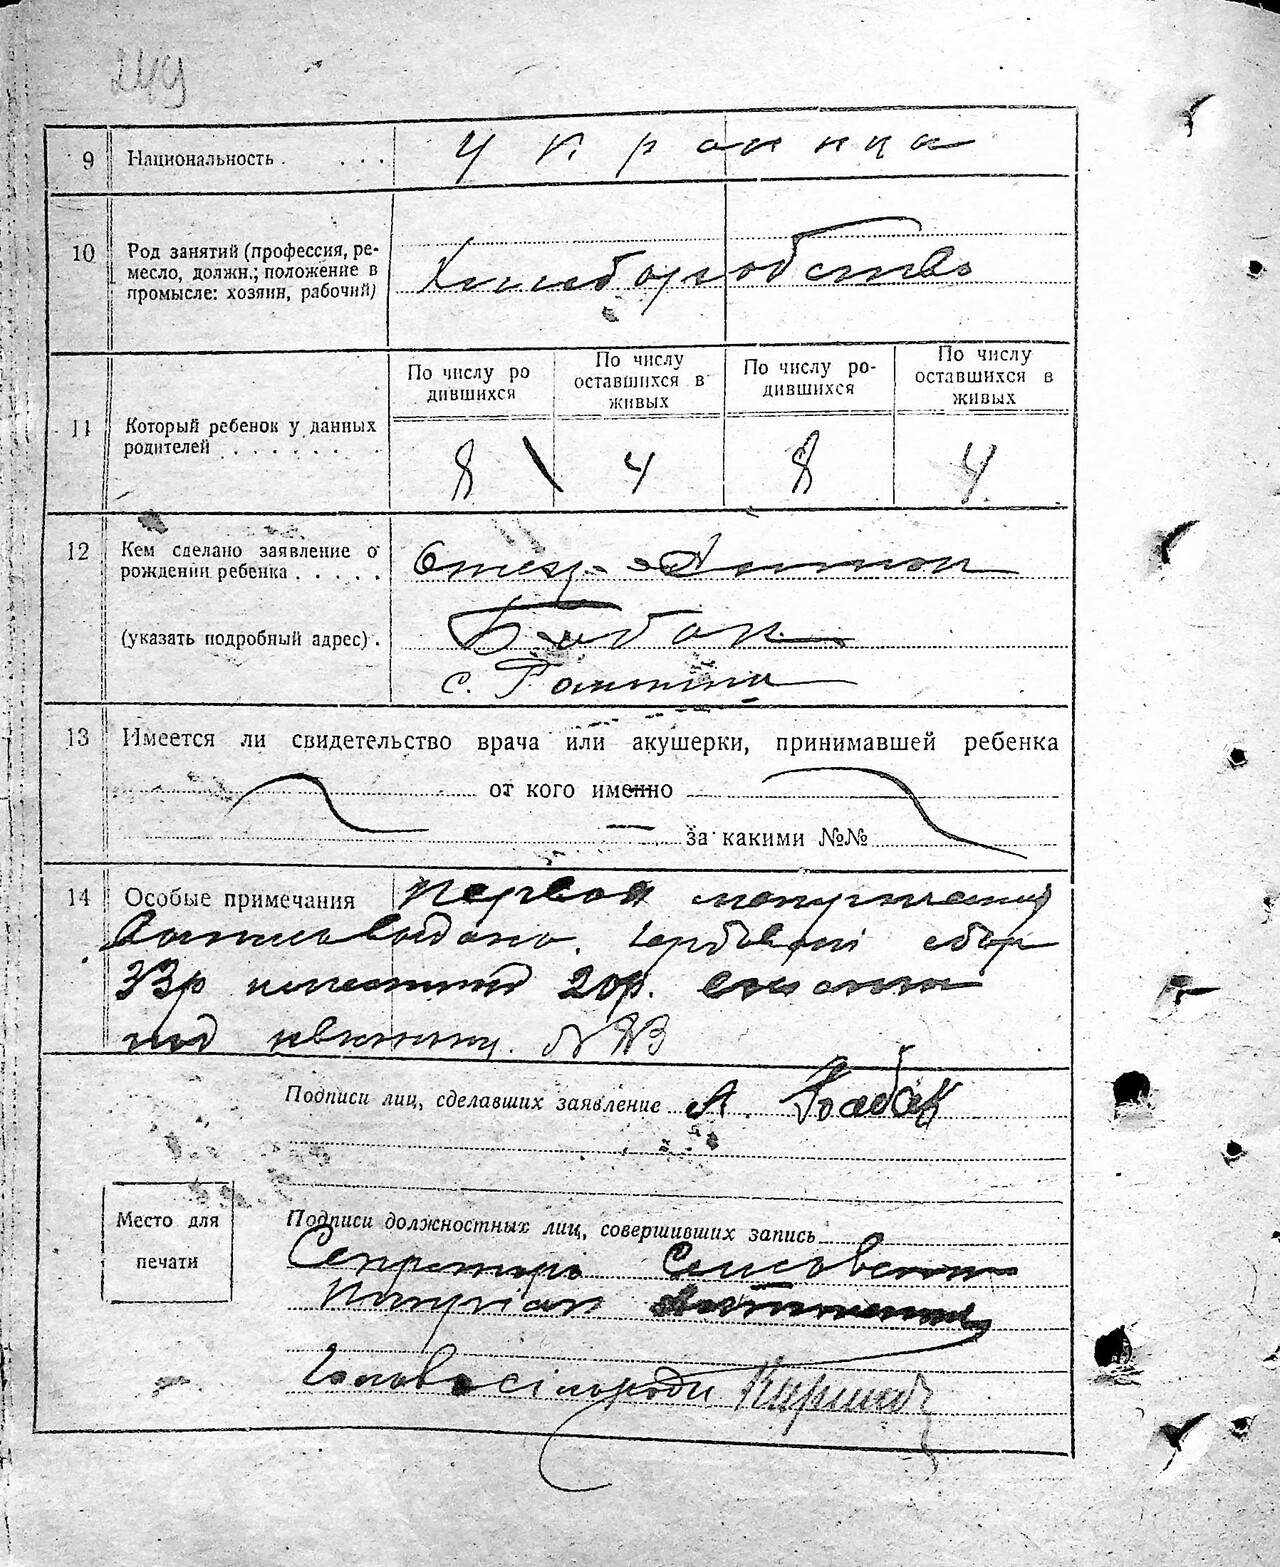 249
9 Национальность . . . . Украинца
10 Род занятий (профессия, ре-
месло, должн.; положение в
промысле: хозяин, рабочий)
Хлиборобство
По числу ро
дившихся
По числу
оставшихся в
живых
По числу ро-
дившихся
По числу
оставшихся в
живых
11 Который ребенок у данных
родителей . . . . . . .
8 4 8 4
12 Кем сделано заявление о
рождении ребенка . . . . .
Отец - Антон
(указать подробный адрес) .
Бабак
с.
13 Имеется ли свидетельство врача или акушерки, принимавшей ребенка
от кого именно
за какими №№
14 Особые примечания Первая
Гербовий сбор
33р 20р.
под квитанц. №
Подписи лиц, сделавших заявление А. Бабак
Место для
печати
Подписи должностных лиц, совершивших запись
Секретарь
Голова сільради